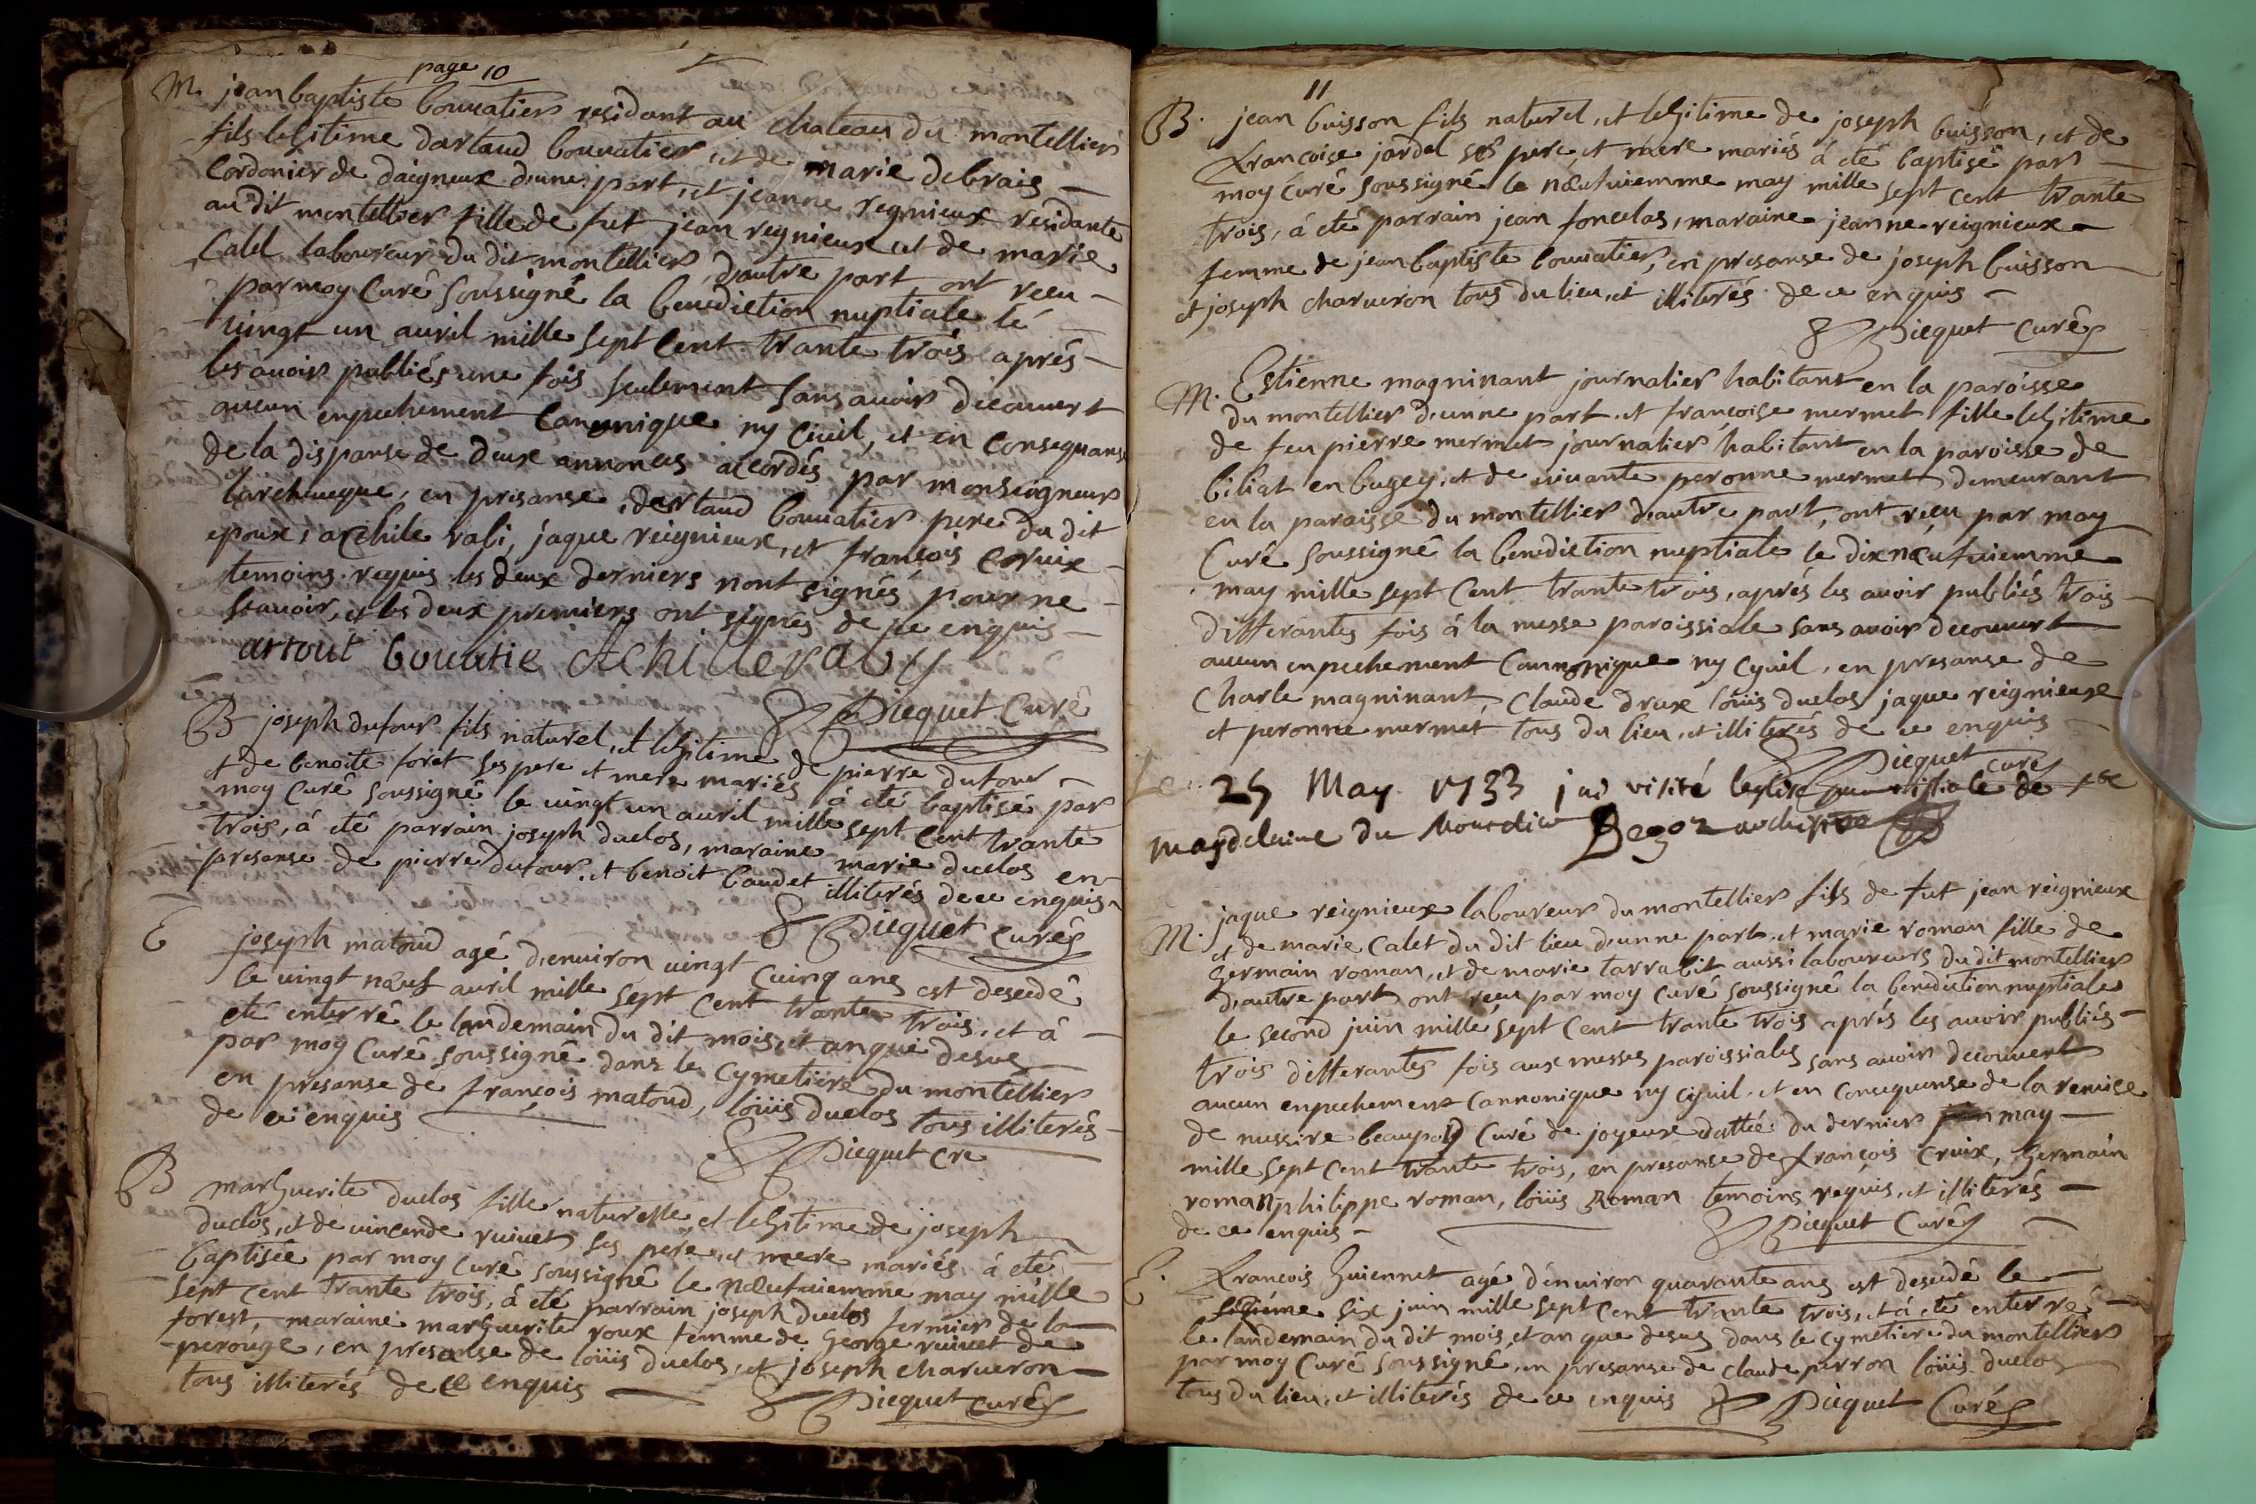 page 10
M. jean baptiste bouuatier residant au chateau du montellier
fils lehitime dartaud bouuatier, et de marie debrais
Cordonier de daigneux d'unne part, et jeanne regnieux residante
au dit montellier fille de fut jean regnieux et de marie
Calet laboureur du dit montellier d'autre part ont recu
par moy Curé soussigné la benediction nuptiale le
uingt un auril mille sept Cent trante trois aprés
les auoir publiés une fois seulement sans auoir decouuert
aucun enpechement Canonique ny Ciuil, et en consequanse
de la dispanse de deux annonces accordés par monseigneur
larcheueque, en presanse dartaud bouuatier pere du dit
epoux, archile rabi, jaque reignieux, et francois Cruix
temoins requis les deux derniers nont signés pour ne
scauoir, et les deux premiers ont signés de ce enquis
artout bouuatie Achille raby
Dicquet Curé
B joseph dufour fils naturel, et lehitime de pierre dufour
et de benoite foret ses pere et mere mariés à eté baptisé par
moy Curé soussigné le uingt un auril mille sept cent trante
trois, à eté parrain joseph duclos, maraine marie duclos en
presanse de pierre dufour, et benoit baudet illiterés de ce enquis
Dicquet curé
E joseph matoud agé d'enuiron uingt cuinq ans est desedé
le uingt nœuf auril mille sept cent trante trois, et à
eté enterré le landemain du dit mois, et an que desus
par moy Curé soussigné dans le Cymetiere du montellier
en presanse de françois matoud, loüis duclos tous illiterés
de ce enquis
Dicquet cre
B marhuerite duclos fille naturelle, et lehitime de joseph
duclos, et de uincende ruiuet ses pere, et mere mariés à eté
baptisée par moy Curé soussigné le nœufuiemme may mille
sept cent trante trois, à eté parrain joseph duclos fermier de la
forest, maraine marhuerite roux femme de george ruiuet de
perouge, en presanse de loüis duclos, et joseph charueron
tous illiterés de ce enquis
Dicquet curé
11
B. jean buisson fils naturel, et lehitime de joseph buisson, et de
francoise jardel ses pere, et mere mariés à eté baptisé par
moy Curé soussigné le nœufuiemme may mille sept cent trante
trois, à eté parrain jean foncelas, maraine jeanne reignieux
femme de jean baptiste bouuatier, en presanse de joseph buisson
et joseph charueron tous du lieu, et illiterés de ce enquis
Dicquet curé
M. Estienne magninant journalier habitant en la paroisse
du montellier d'unne part, et françoise mermet fille lehitime
de feu pierre mermet journalier habitant en la paroisse de
biliat en bugey, et de uiuante peronne mermet demeurant
en la paroisse du montellier d'autre part, ont recu par moy
Curé soussigné la benediction nuptiale le dix nœufuiemme
may mille sept Cent trante trois, aprés les auoir publiés trois
differantes fois à la messe paroissiale sans auoir decouuert
aucun enpechement Cannonique ny Cyuil, en presanse de
Charle magninant, Claude drux loüis duclos jaque reignieux
et peronne mermet tous du lieu, et illiterés de ce enquis
Dicquet curé
Le 25 May 1733 jai visité leglise parroissiale de ste
magdelaine du Mouedier archiprtre
M. jaque reignieux laboureur du montellier fils de fut jean reignieux
et de marie Calet du dit lieu d'unne part, et marie roman fille de
germain roman, et de marie tarrabit aussi laboureurs du dit montellier
d'autre part ont recu par moy curé soussigné la benediction nuptiale
le second juin mille sept cent trante trois aprés les auoir publiés
trois differantes fois aux messes paroissiales sans auoir decouuert
aucun enpechement cannonique ny cyuil, et en consequanse de la remise
de messire beaupoil Curé de joyeux dattée du dernier may
mille sept cent trante trois, en presanse de francois Cruix, germain
roman, philippe roman, loüis Roman temoins requis, et illiterés
de ce enquis
Dicquet Curé
E. francois guiennet agé d'enuiron quarante ans est desedé le
six juin mille sept cent trante trois, et à eté enterré
le landemain du dit mois, et an que desus dans le cymetiere du montellier
par moy Curé soussigné, en presanse de claude perron loüis duclos
tous du lieu, et illiterés de ce enquis Dicquet Curé